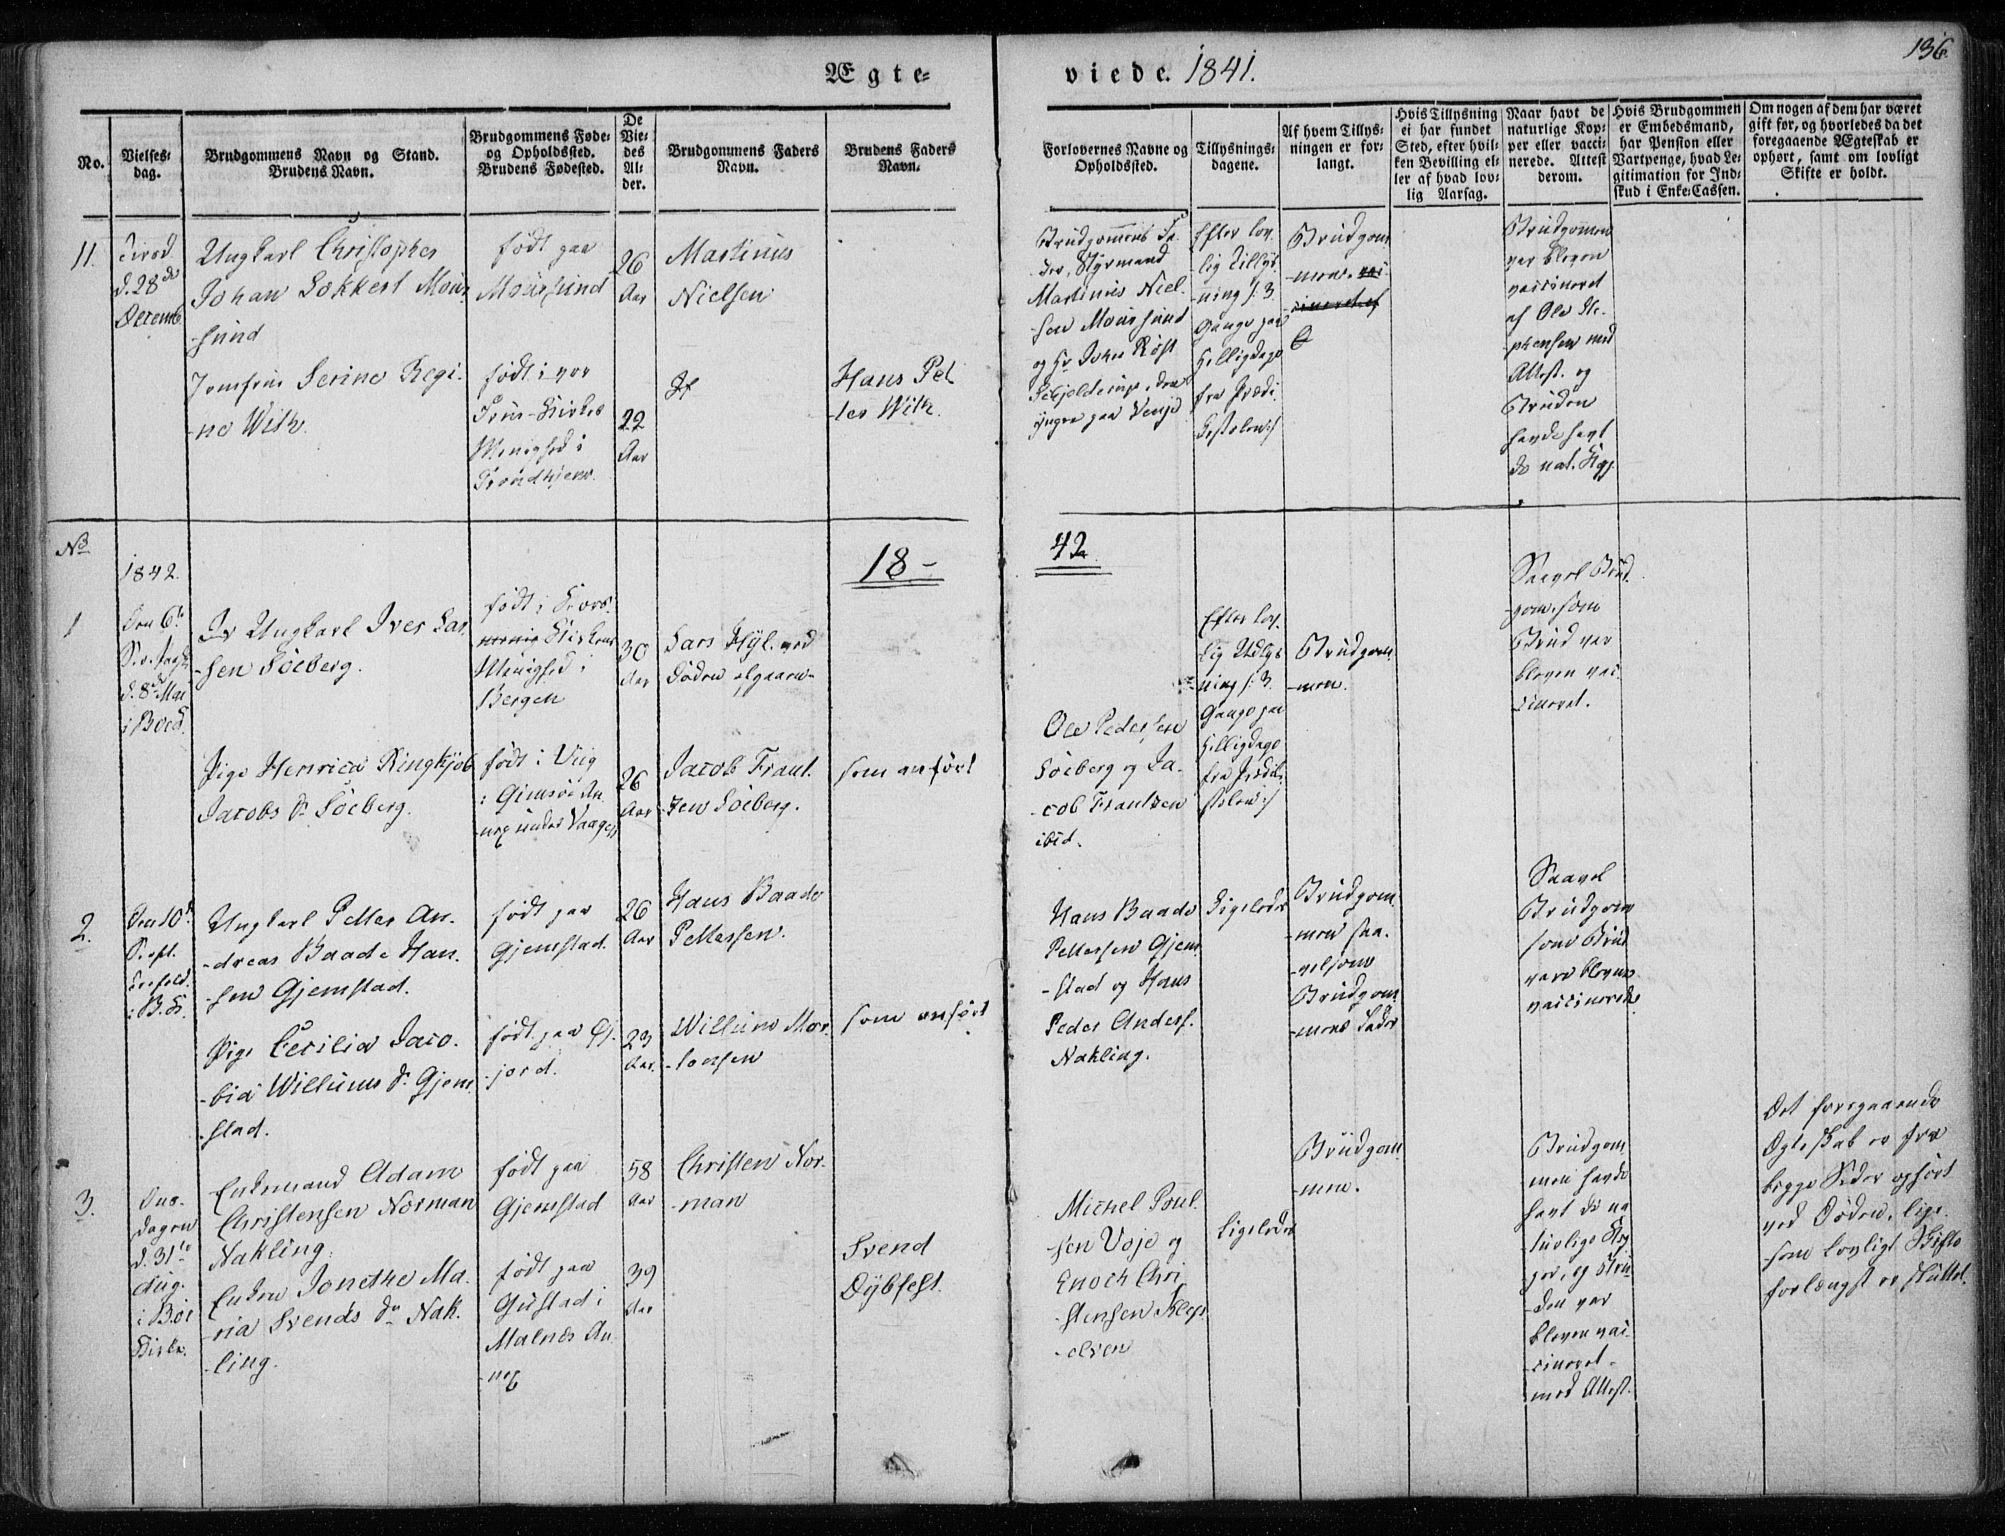 Ægte-
viede. 1841.
136
No.
Vielses-
dag.
Brudgommens Navn og Stand.
Brudens Navn.
Brudgommens Føde-
og Opholdssted.
Brudens Fødested.
De
Vie-
des
Al-
der.
Brudgommens Faders
Navn.
Brudens Faders
Navn.
Forlovernes Navne og
Opholdssted.
Tillysnings-
dagene.
Af hvem Tillys-
ningen er for-
langt.
Hvis Tillysning
ei har fundet
Sted, efter hvil-
ken Bevilling el-
ler af hvad lov-
lig Aarsag.
Naar havt de
naturlige Kop-
per eller vacci-
nerede. Attest
derom.
Hvis Brudgommen
er Embedsmand,
har Pension eller
Vartpenge, hvad Le-
gitimation for Ind-
skud i Enke-Cassen.
Om nogen af dem har været
gift før, og hvorledes da det
foregaaende Ægteskab er
ophørt, samt om lovligt
Skifte er holdt.
11.
d. 28de
Decemb.
Ungkarl Christopher
Johan Lokkert Mour-
sund
Jomfrue Serine Regi-
ne With.
født paa
Moursund
født i vor
Frue-Kirkes
Menighed i
Trondhjem.
26
Aar
22
Aar
Martinus
Nielsen
Hans Pet-
ter With.
Brudgommens Fa-
der, Styrmand
Martinus Niel-
sen Moursund
og Hr Johan Røst
Schjelderup, den
yngre paa Venje
Efter lov-
lig Tillys-
ning /: 3
Gange paa
Helligdage
fra Prædi-
kestolen:/
Brudgom-
men.
Brudgommen
var bleven
vaccineret
af Ole Ste-
phensen med
Attest. og
Bruden
havde havt
de nat. Kop.
No
18-
42
1842.
1
Den 6te
d. 8de Mai
i Boe
Ungkarl Iver Lar-
sen Söeberg.
Pige Henrica Ringkjöb
Jacobs Dr Söeberg.
født i
Kirkens
Menighed i
Bergen
født i Viig
i Gimsöe An-
nex under Vaagen
30
Aar
26
Aar
Lars Hyl. ved
Döden afgaaen
Jacob Frant-
zen Söeberg.
som anført
Ole Pedersen
Söeberg og Ja-
cob Frantzen
ibid.
Efter lov-
lig Udlys-
ning /: 3
Gange paa
Helligdage
fra Prædik-
stolen:/
Brudgom-
men.
Saavel Brud-
gom som
Brud var
bleven vac-
cineret.
2.
Den 10de
Sept.
Ungkarl Petter An-
dreas Baade Han-
sen Gjemstad.
Pige Cecilia Jaco-
bia Willums Dr Gjem-
stad.
født paa
Gjemstad.
født paa Ei-
jord.
26
Aar
23
Aar.
Hans Baade
Pettersen.
Willum Mor-
tensen
som anført
Hans Baade
Pettersen Gjem-
stad og Hans
Peder Anders.
Nakling.
Ligeledes
Brudgom-
men saa-
velsom
Brudgom-
mens Fader
Saavel
Brudgom
som Brud
vare blevne
vaccinerede
3.
Ons-
dagen
d. 31te
Aug.
i Böe
Kirke.
Enkemand Adam
Christensen Norman
Nakling.
Enken Jonethe Ma-
ria Svends Dr Nak-
ling.
født paa
Gjemstad
født paa
Gustad i
Malnæs An-
nex
58
Aar
39
Aar
Christen Nor-
man
Svend
Dybfest.
Michel Poul-
sen Voje og
Enoch Chri-
stensen Kleps-
elven
Ligeledes
Brudgom-
men.
Brudgom-
men havde
havt de na-
turlige Kop-
per, og Bru-
den var
bleven vac-
cineret
med Attest.
Det foregaaende
Ægteskab er fra
begge Sider ophört
ved Döden, lige-
som lovligt Skifte
forlængst er sluttet.